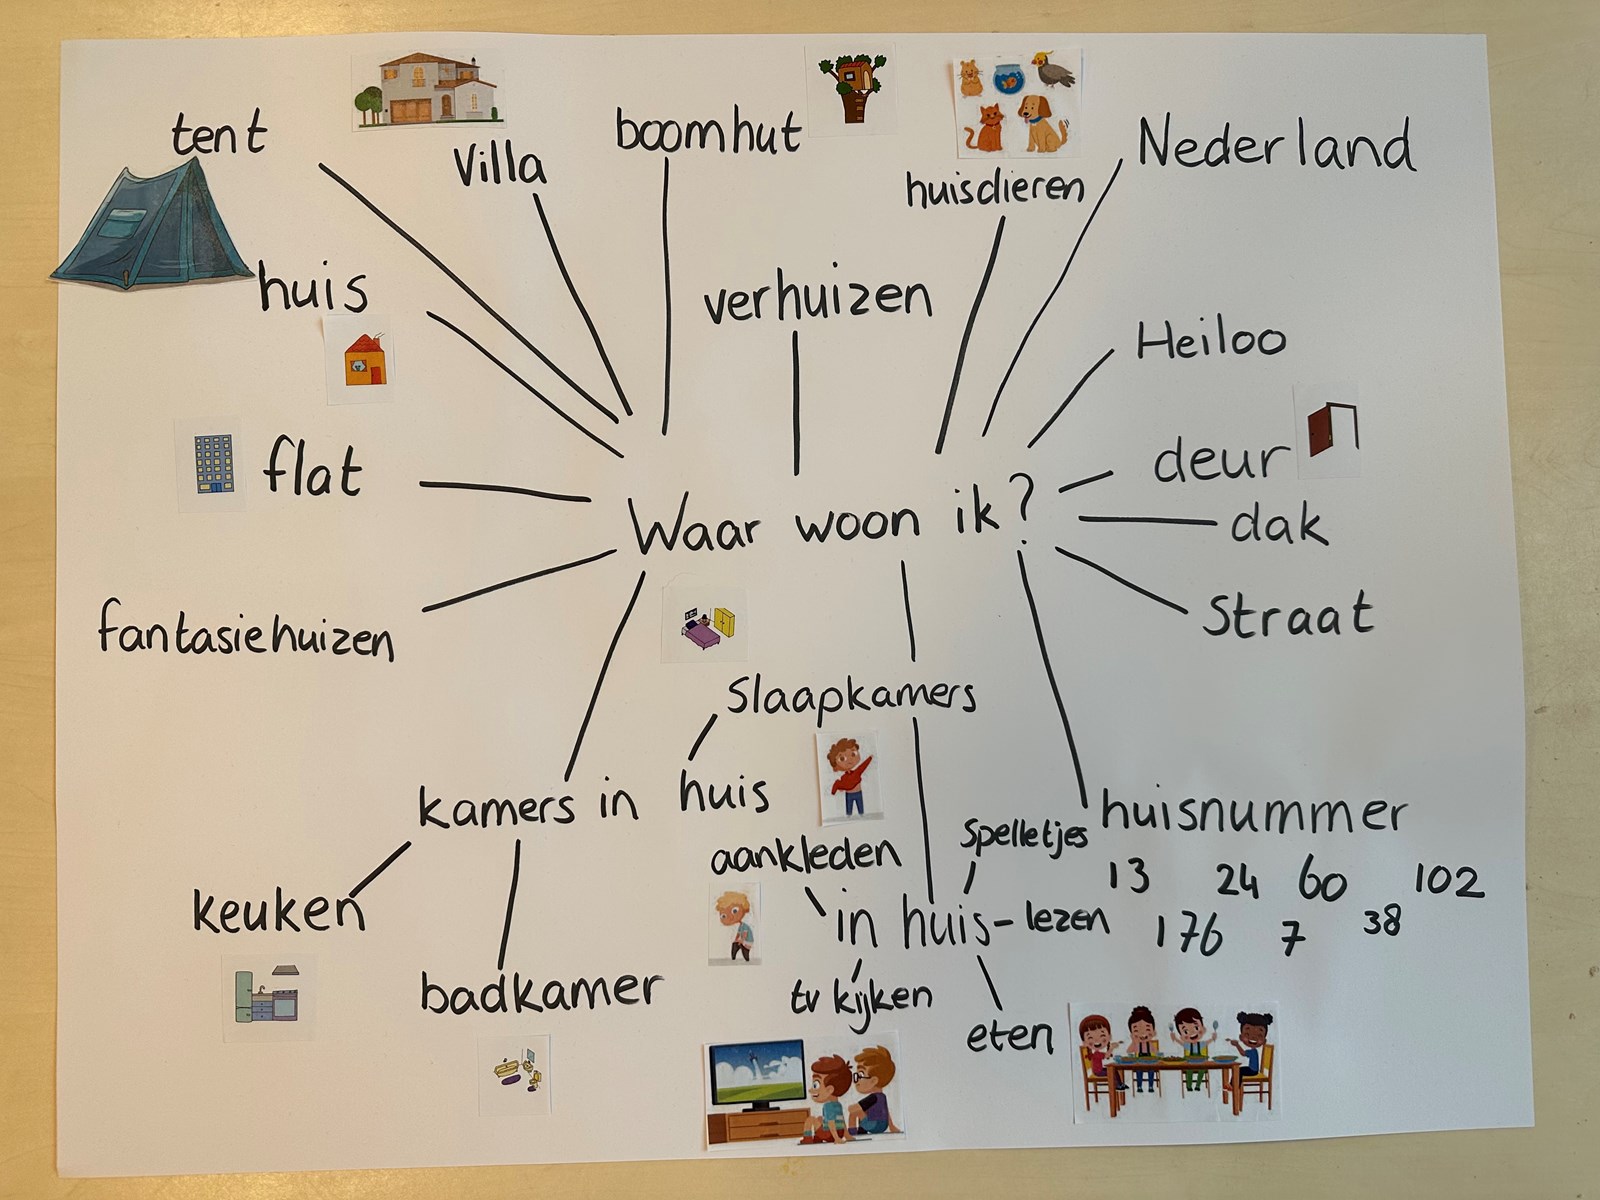 tent
Villa
boomhut
huisdieren
Nederland
huis
verhuizen
Heiloo
flat
deur
Waar woon ik?
dak
fantasiehuizen
Straat
Slaapkamers
kamers in huis
huisnummer
aankleden
Spelletjes
13 24 60 102
keuken
in huis - lezen
176 7 38
badkamer
tv kijken
eten